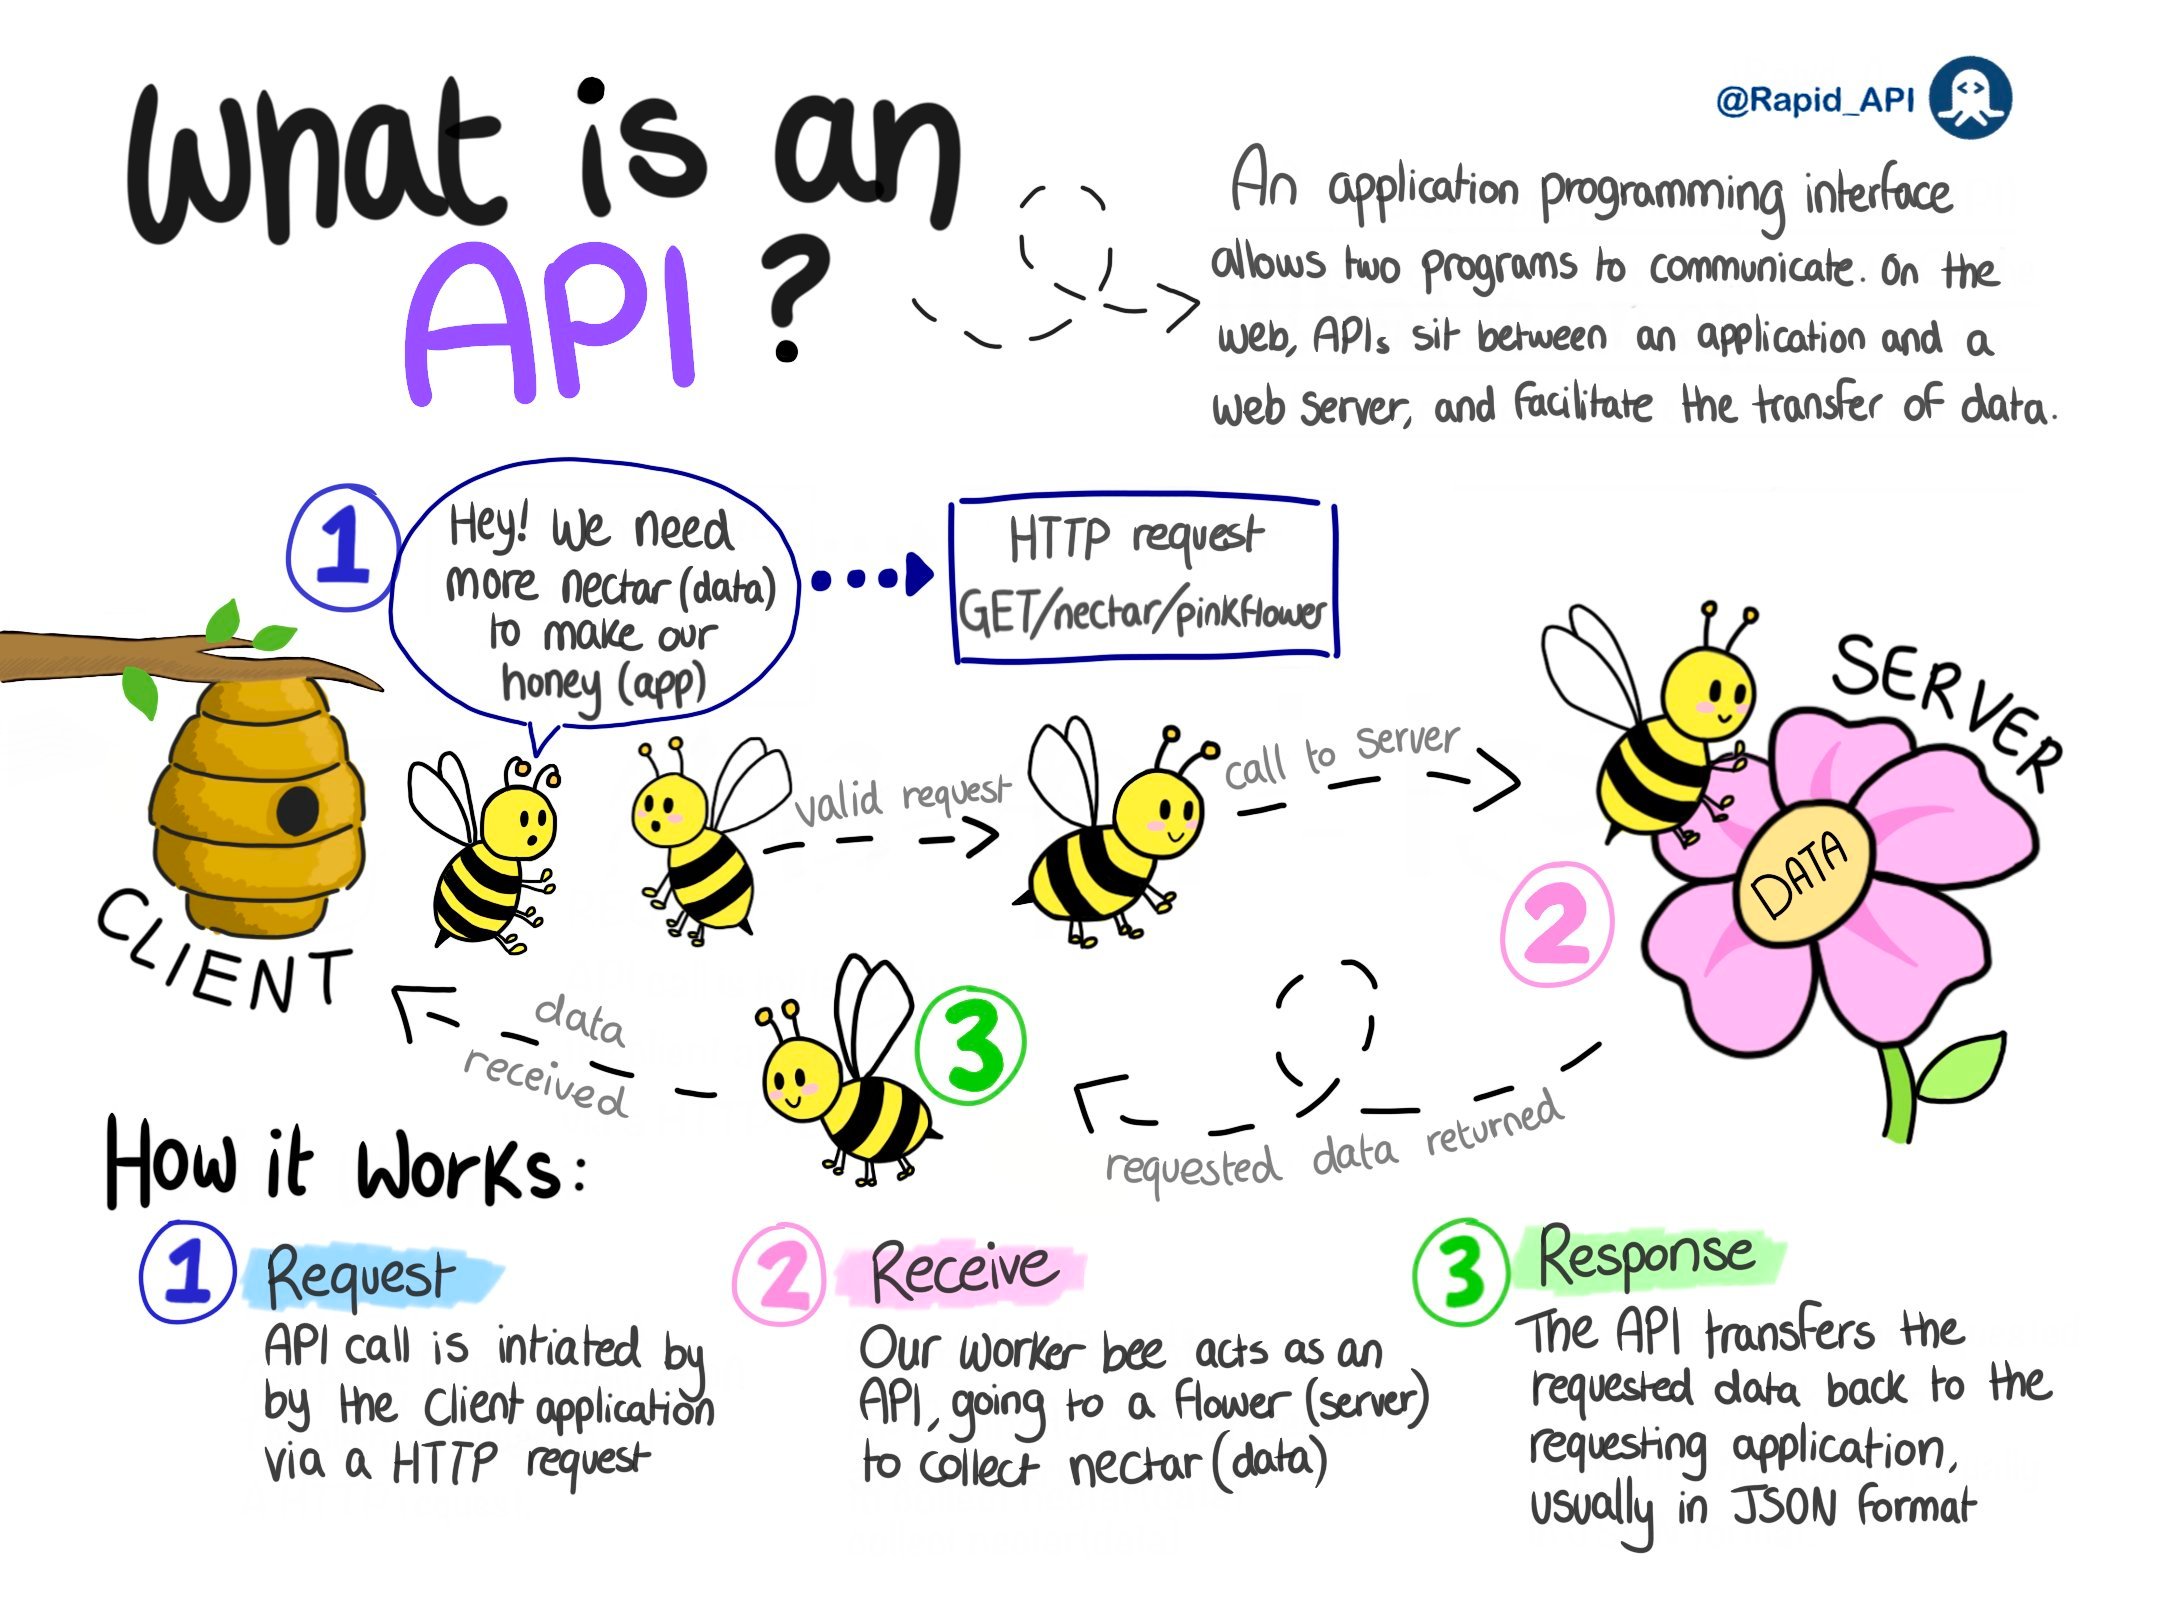 What is an
API?
@Rapid_API
An application programming interface
allows two programs to communicate. On the
web, APIs sit between an application and a
web server, and facilitate the transfer of data.
1
Hey! We need
more nectar (data)
to make our
honey (app)
HTTP request
GET/nectar/pinkflower
SERVER
CLIENT
valid request
call to server
DATA
2
3
data
received
requested data returned
How it works:
1 Request
API call is intiated by
by the client application
via a HTTP request
2 Receive
Our worker bee acts as an
API, going to a flower (server)
to collect nectar (data)
3 Response
The API transfers the
requested data back to the
requesting application,
usually in JSON format